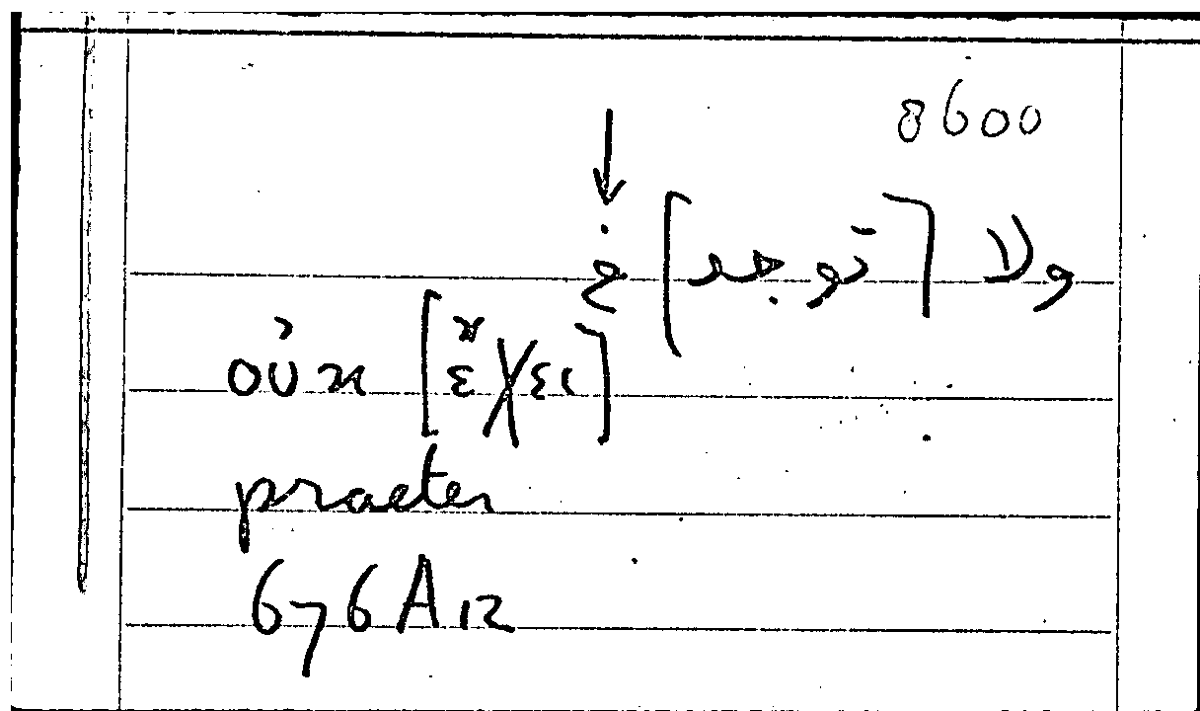 8600
↓
ولا [توجد] غ
οὐκ [ἔχει]
praeter
676A12